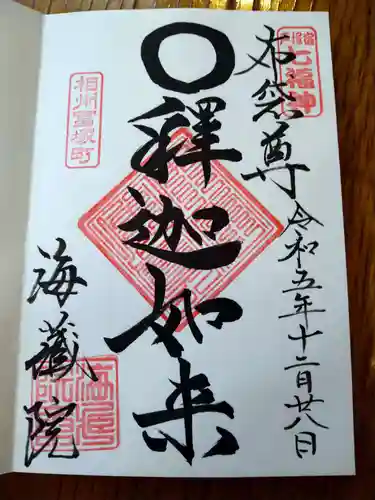 七福神
布袋尊
令和五年十二月廿八日
〇釋迦如来
相州富塚町
海藏院